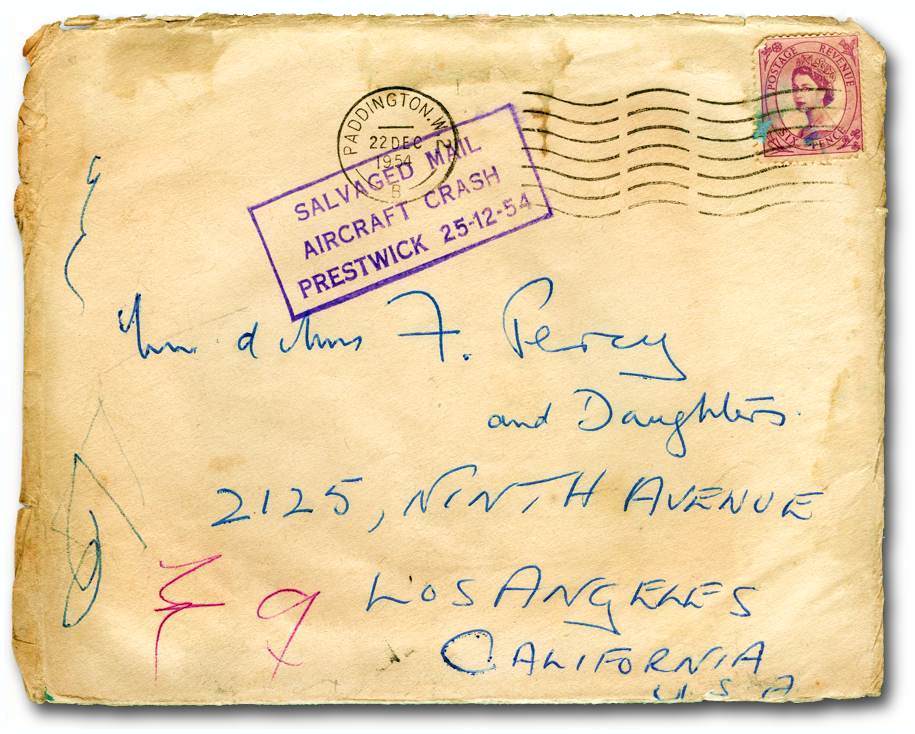 POSTAGE REVENUE
SIX PENCE
PADDINGTON. W.2
22 DEC
1954
B
SALVAGED MAIL
AIRCRAFT CRASH
PRESTWICK 25-12-54
F. Percy
and Daughters.
2125, NINTH AVENUE
LOS ANGELES
CALIFORNIA
U.S.A